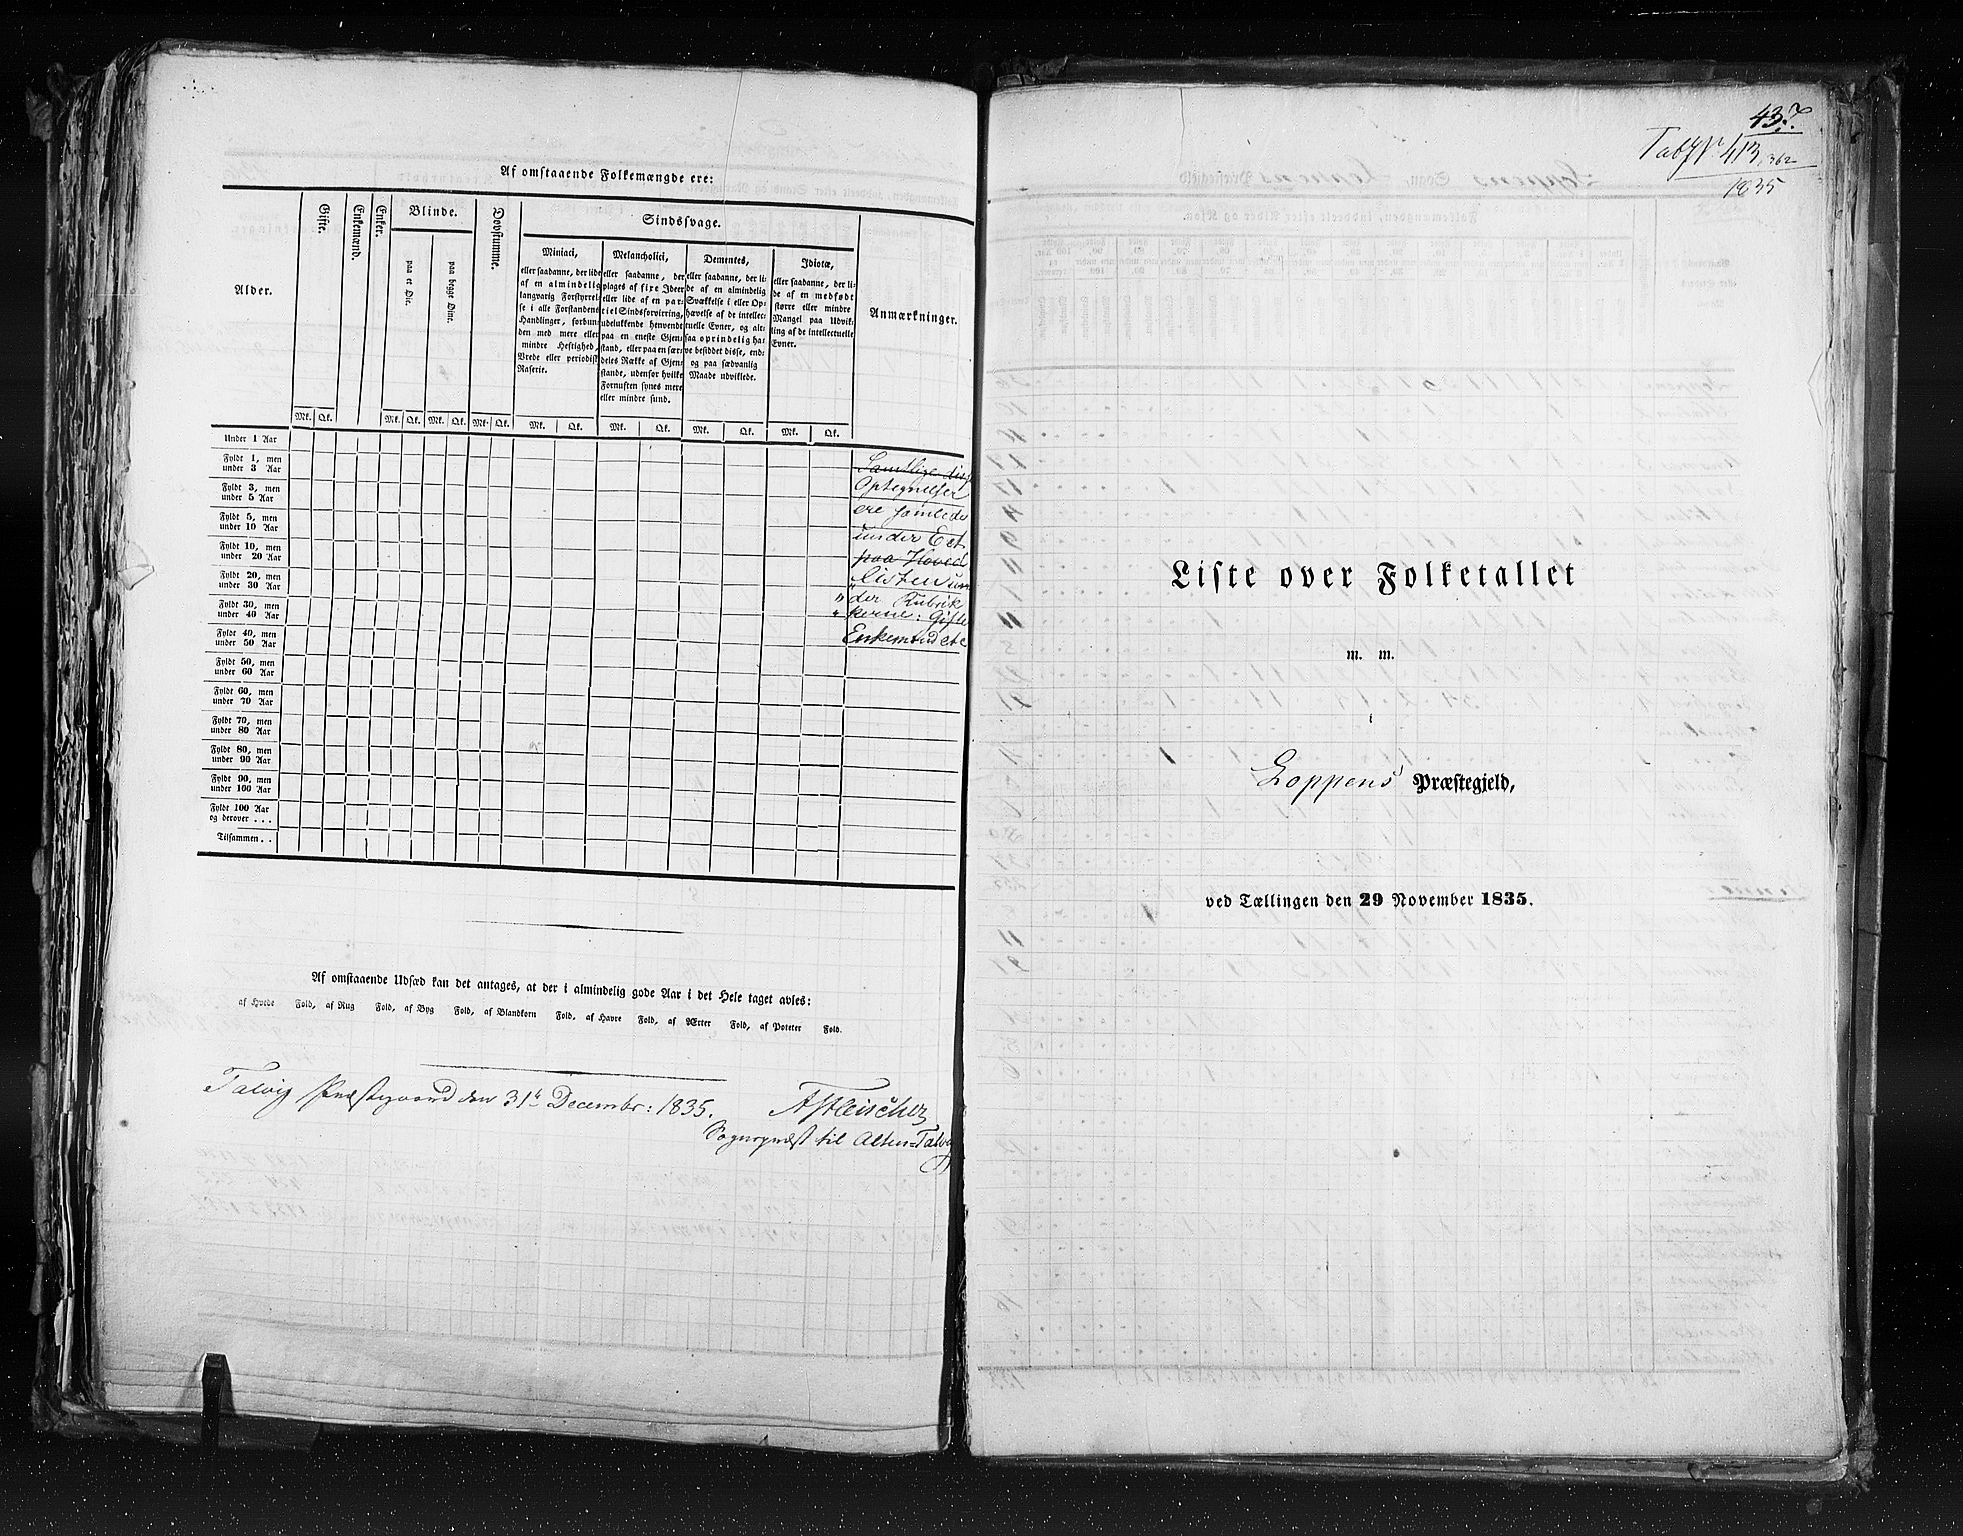 Af omstaaende Folkemængde ere:
Alder.
Gifte.
Enkemænd.
Enker.
Blinde.
paa et Øie.
paa begge Øine.
Døvstumme.
Sindssvage.
Miniaci,
eller saadanne, der lide
af en almindelig
langvarig Forstyrrel-
se i alle Forstandens
Handlinger, forbun-
den med mere eller
mindre Heftighed,
Vrede eller periodisk
Raserie.
Melancholici,
eller saadanne, der
plages af fixe Ideer
eller lide af en par-
tiel Sindsforvirring,
udelukkende henvendt
paa en eneste Gjen-
stand, eller paa en sær-
deles Række af Gjen-
stande, udenfor hvilke
Fornuften synes mere
eller mindre sund.
Dementes,
eller saadanne, der li-
de af en almindelig
Svækkelse i eller Op-
hævelse af de intellec-
tuelle Evner, og alt-
saa oprindelig ha-
ve besiddet disse, end-
og paa sædvanlig
Maade udviklede.
Idiotæ,
eller saadanne, der li-
de af en medfødt
større eller mindre
Mangel paa Udvik-
ling af de intellectuelle
Evner.
Anmærkninger.
Mk. Qk. Mk. Qk. Mk. Qk. Mk. Qk. Mk. Qk. Mk. Qk. Mk. Qk. Mk. Qk.
Under 1 Aar
Fyldt 1, men
under 3 Aar
Fyldt 3, men
under 5 Aar
Fyldt 5, men
under 10 Aar
Fyldt 10, men
under 20 Aar
Fyldt 20, men
under 30 Aar
Fyldt 30, men
under 40 Aar
Fyldt 40, men
under 50 Aar
Fyldt 50, men
under 60 Aar
Fyldt 60, men
under 70 Aar
Fyldt 70, men
under 80 Aar
Fyldt 80, men
under 90 Aar
Fyldt 90, men
under 100 Aar
Fyldt 100 Aar
og derover . . .
Tilsammen . .
Samtlige disse
Optegnelser
ere samlede
under Eet
paa Hoved
Listen un
" der Rubrik
" kerne: Gifte
Enkemænd etc
Af omstaaende Udsæd kan det antages, at der i almindelig gode Aar i det Hele taget avles:
af Hvede Fold, af Rug Fold, af Byg Fold, af Blandkorn Fold, af Havre Fold, af Ærter Fold, af Poteter Fold.
Talvig Præstegaard den 31t Decembr: 1835.
A Fleischer
Sognepræst til Alten=Talvig
437.
Tab N. 413, 362
1835
Liste over Folketallet
m. m.
i
Loppens Præstegjeld,
ved Tællingen den 29 November 1835.